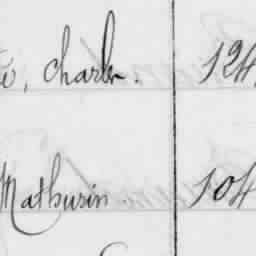 té, Charles. 124
Mathurin 104